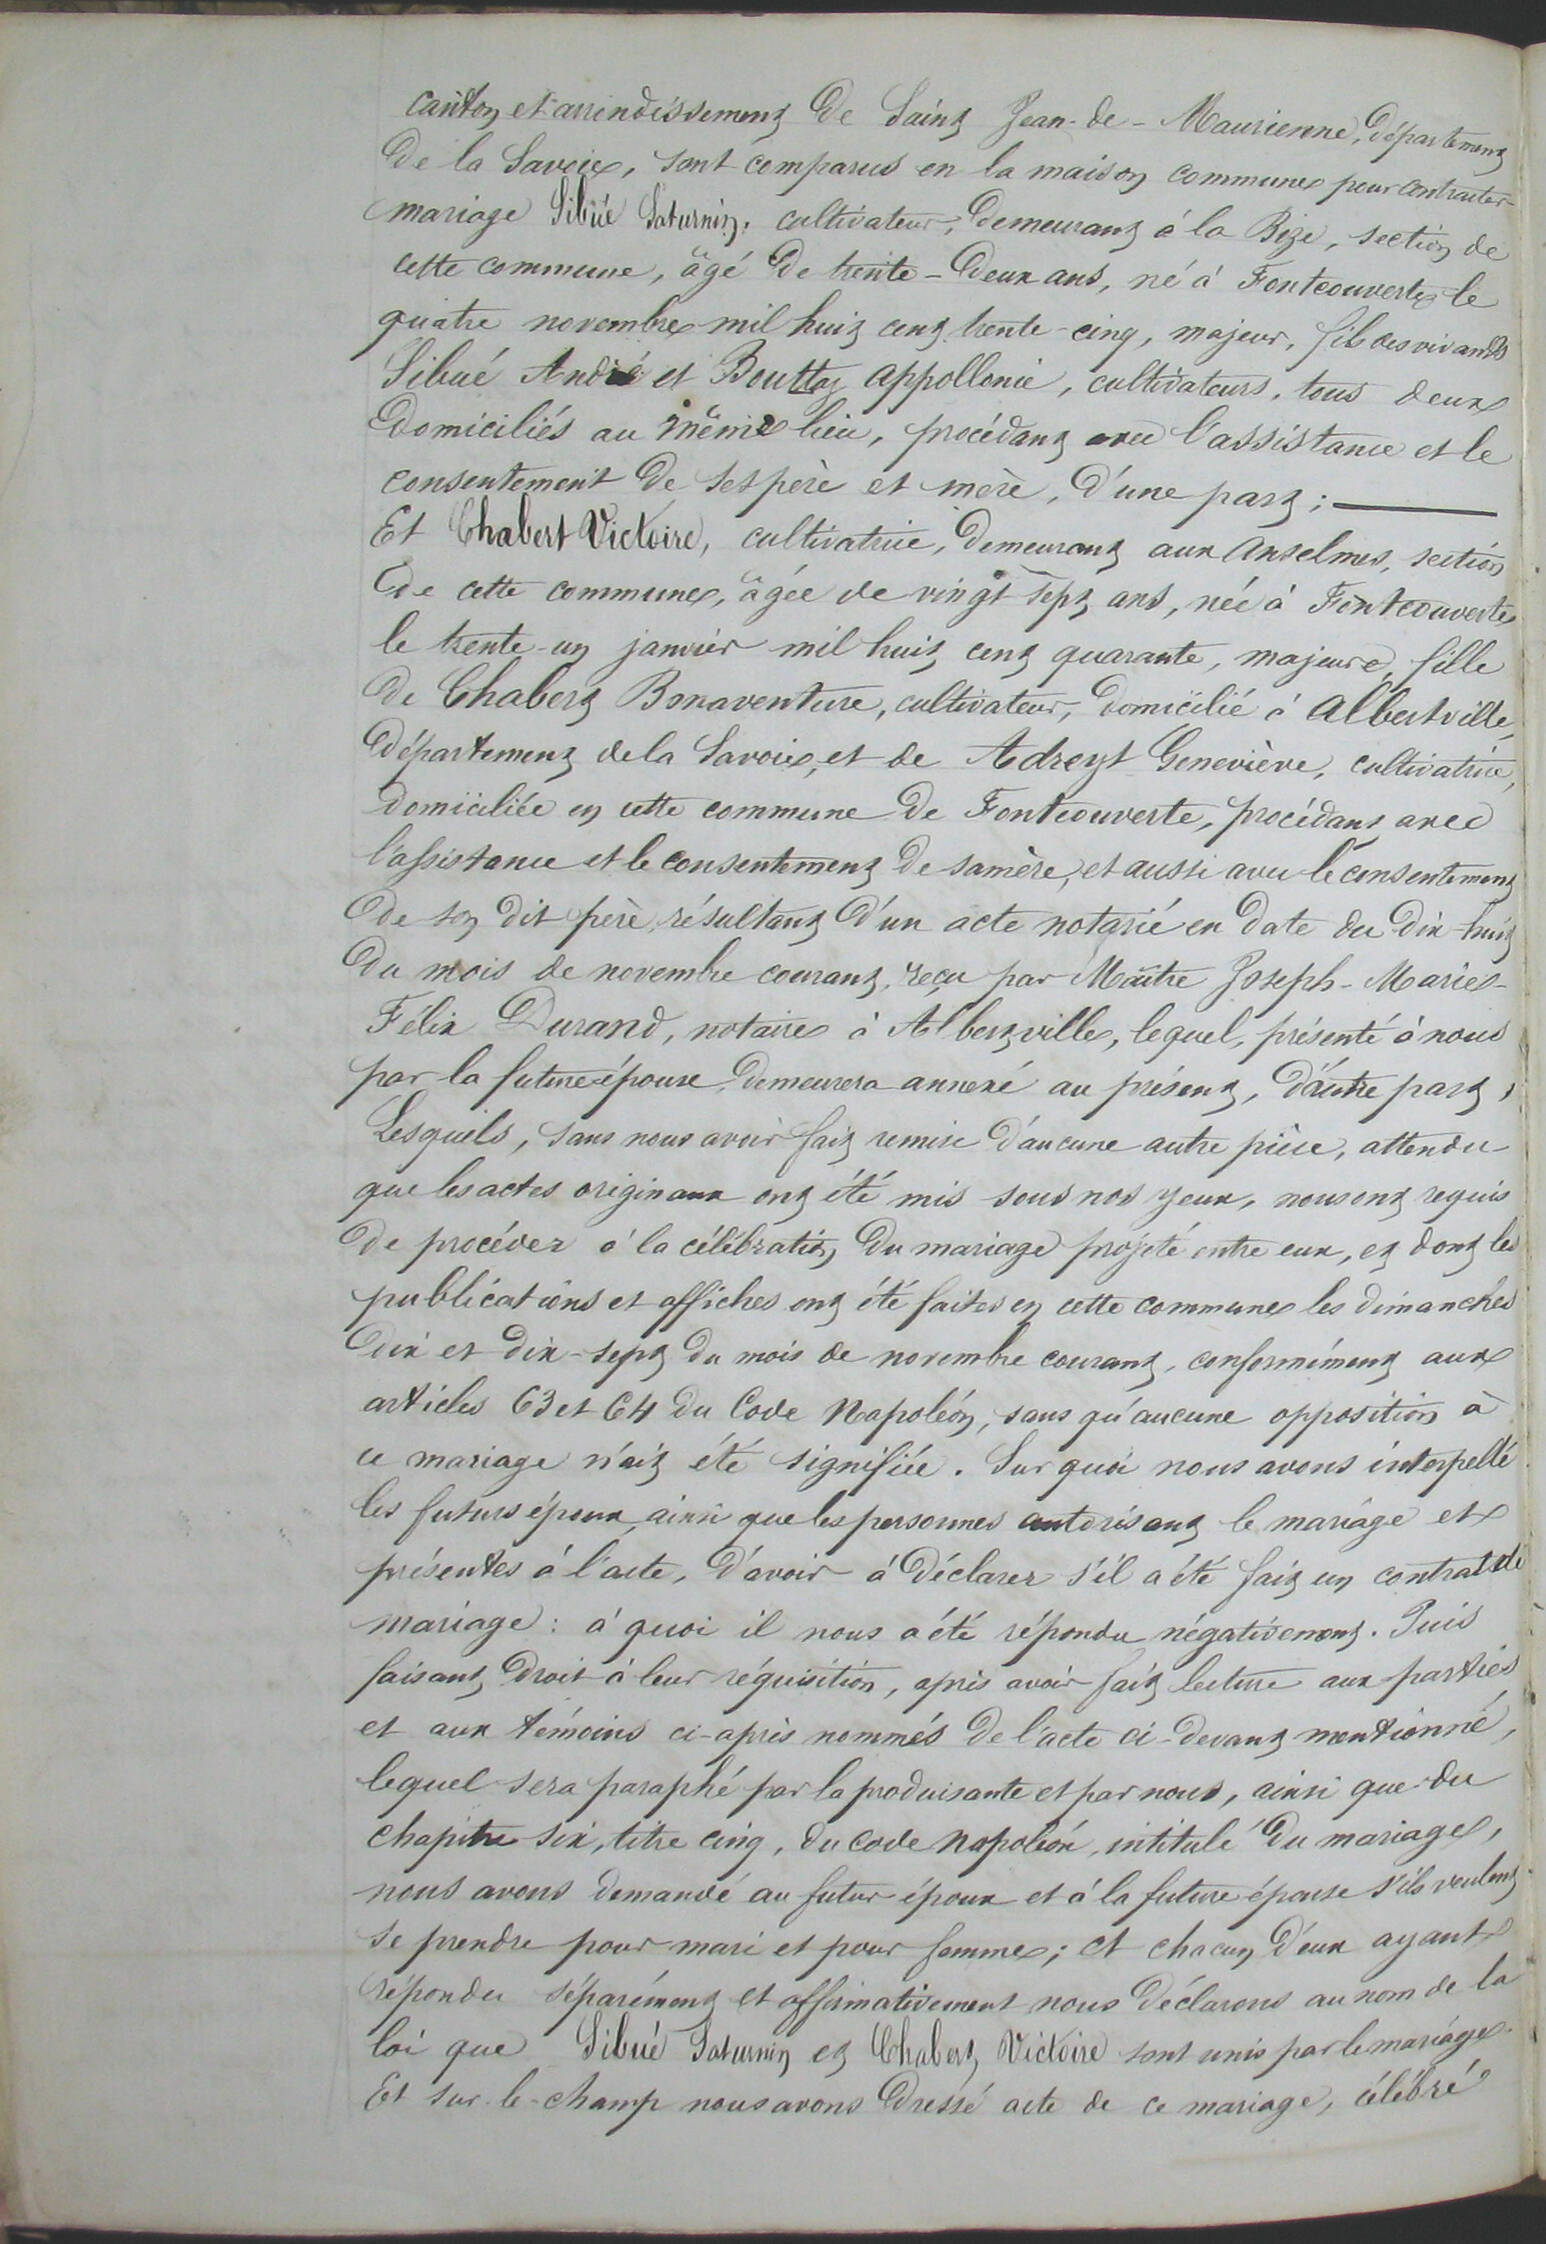 canton et arrondissement de Saint Jean-de-Maurienne, département
de la Savoie, sont comparus en la maison commune pour contracter
mariage Sibué Saturnin, cultivateur, demeurant à la Bize, section de
cette commune, âgé de trente-deux ans, né à Fontcouverte le
quatre novembre mil huit cent trente-cinq, majeur, fils des vivants
Sibué André et Bouttaz Appollonie, cultivateurs, tous deux
domiciliés au même lieu, procédant avec l'assistance et le
consentement de ses père et mère, d'une part ;
Et Chabert Victoire, cultivatrice, demeurant aux Anselmes, section
de cette commune, âgée de vingt sept ans, née à Fontcouverte
le trente-un janvier mil huit cent quarante, majeure, fille
de Chabert Bonaventure, cultivateur, domicilié à Albertville,
département de la Savoie, et de Adreyt Geneviève, cultivatrice,
domiciliée en cette commune de Fontcouverte, procédant avec
l'assistance et le consentement de sa mère, et aussi avec le consentement
de son dit père, résultant d'un acte notarié en date du dix-huit
du mois de novembre courant, reçu par Maître Joseph-Marie-
Félix Durand, notaire à Albertville, lequel, présenté à nous
par la future épouse, demeurera annexé au présent, d'autre part,
Lesquels, sans nous avoir fait remise d'aucune autre pièce, attendu
que les actes originaux ont été mis sous nos yeux, nous ont requis
de procéder à la célébration du mariage projeté entre eux, et dont les
publications et affiches ont été faites en cette commune les dimanches
dix et dix-sept du mois de novembre courant, conformément aux
articles 63 et 64 du Code Napoléon, sans qu'aucune opposition à
ce mariage n'ait été signifiée. Sur quoi nous avons interpellé
les futurs époux, ainsi que les personnes autorisant le mariage et
présentes à l'acte, d'avoir à déclarer s'il a été fait un contrat de
mariage : à quoi il nous a été répondu négativement. Puis
faisant droit à leur réquisition, après avoir fait lecture aux parties
et aux témoins ci-après nommés de l'acte ci-devant mentionné,
lequel sera paraphé par la produisante et par nous, ainsi que du
chapitre six, titre cinq, du code Napoléon, intitulé du mariage,
nous avons demandé au futur époux et à la future épouse s'ils veulent
se prendre pour mari et pour femme ; et chacun d'eux ayant
répondu séparément et affirmativement nous déclarons au nom de la
loi que Sibué Saturnin et Chabert Victoire sont unis par le mariage.
Et sur-le-champ nous avons dressé acte de ce mariage, célébré